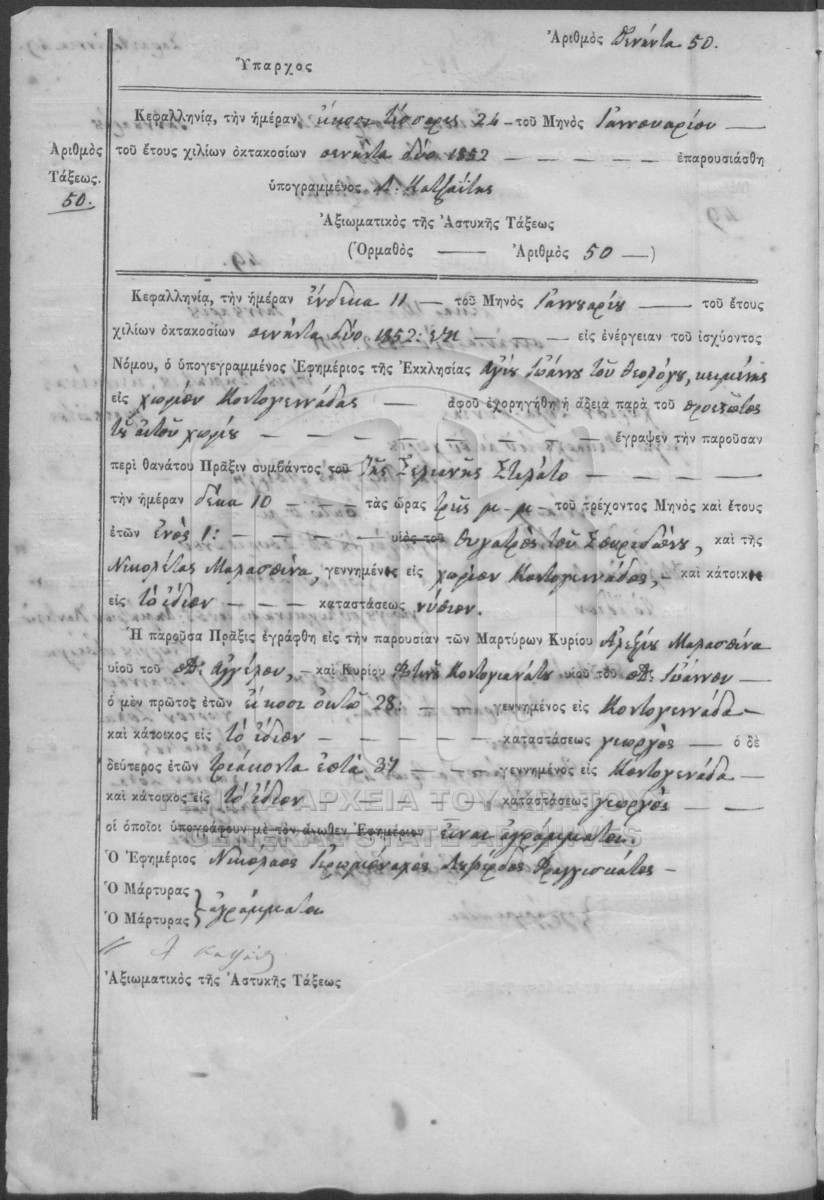 Ἀριθμὸς πενήντα 50.
Ὕπαρχος
Κεφαλληνίᾳ, τὴν ἡμέραν εἴκοσι τέσσαρες 24 – τοῦ Μηνὸς Ἰαννουαρίου —
Ἀριθμὸς Τάξεως. 50.
τοῦ ἔτους χιλίων ὀκτακοσίων πενήντα δύο 1852 – – – – ἐπαρουσιάσθη
ὑπογραμμένος
Ἀξιωματικὸς τῆς Ἀστυκῆς Τάξεως
(Ὁρμαθὸς — Ἀριθμὸς 50 —)
Κεφαλληνίᾳ, τὴν ἡμέραν ἕνδεκα 11 — τοῦ Μηνὸς Ἰαννουαρίου — τοῦ ἔτους
χιλίων ὀκτακοσίων πενήντα δύο 1852: – – – εἰς ἐνέργειαν τοῦ ἰσχύοντος
Νόμου, ὁ ὑπογεγραμμένος Ἐφημέριος τῆς Ἐκκλησίας Ἁγίου Ἰωάννου τοῦ Θεολόγου, κειμένης
εἰς χωρίον Κοντογεννάδας — ἀφοῦ ἐχορηγήθη ἡ ἄδεια παρὰ τοῦ προεστῶτος
τοῦ αὐτοῦ χωρίου – – – – – – – ἔγραψεν τὴν παροῦσαν
περὶ θανάτου Πρᾶξιν συμβάντος τοῦ τῆς Στελάτο – – – –
τὴν ἡμέραν δέκα 10 – – – τὰς ὥρας τρεῖς μ–μ – τοῦ τρέχοντος Μηνὸς καὶ ἔτους
ἐτῶν ἑνὸς 1: – – – – υἱὸς τοῦ θυγατρὸς τοῦ Σπυριδώνου, καὶ τῆς
Νικολέτας Μαλασπίνα, γεννημένος εἰς χωρίον Κοντογεννάδας, – καὶ κάτοικος
εἰς τὸ ἴδιον – – – καταστάσεως νήπιον.
Ἡ παροῦσα Πρᾶξις ἐγράφθη εἰς τὴν παρουσίαν τῶν Μαρτύρων Κυρίου Ἀλεξίου Μαλασπίνα
υἱοῦ τοῦ Ἀγγέλου, – καὶ Κυρίου Φωτεινοῦ Κοντογιανάτου υἱοῦ τοῦ Ἰωάννου –
ὁ μὲν πρῶτος ἐτῶν εἴκοσι ὀκτὼ 28: – – – γεννημένος εἰς Κοντογεννάδα –
καὶ κάτοικος εἰς τὸ ἴδιον – – – – – καταστάσεως γεωργὸς — ὁ δὲ
δεύτερος ἐτῶν τριάκοντα ἑπτὰ 37 – – – γεννημένος εἰς Κοντογενάδα —
καὶ κάτοικος εἰς τὸ ἴδιον – – – – – καταστάσεως γεωργὸς – –
οἱ ὁποῖοι ὑπογράφουν μὲ τὸν ἄνωθεν Ἐφημέριον εἶναι ἀγράμματοι
ΓΕΝΙΚΑ ΑΡΧΕΙΑ ΤΟΥ ΚΡΑΤΟΥΣ
GENERAL STATE ARCHIVES
Ὁ Ἐφημέριος Νικόλαος Ἱερομόναχος Φραγγισκάτος –
Ὁ Μάρτυρας
Ὁ Μάρτυρας } ἀγράμματοι
Ἀξιωματικὸς τῆς Ἀστυκῆς Τάξεως